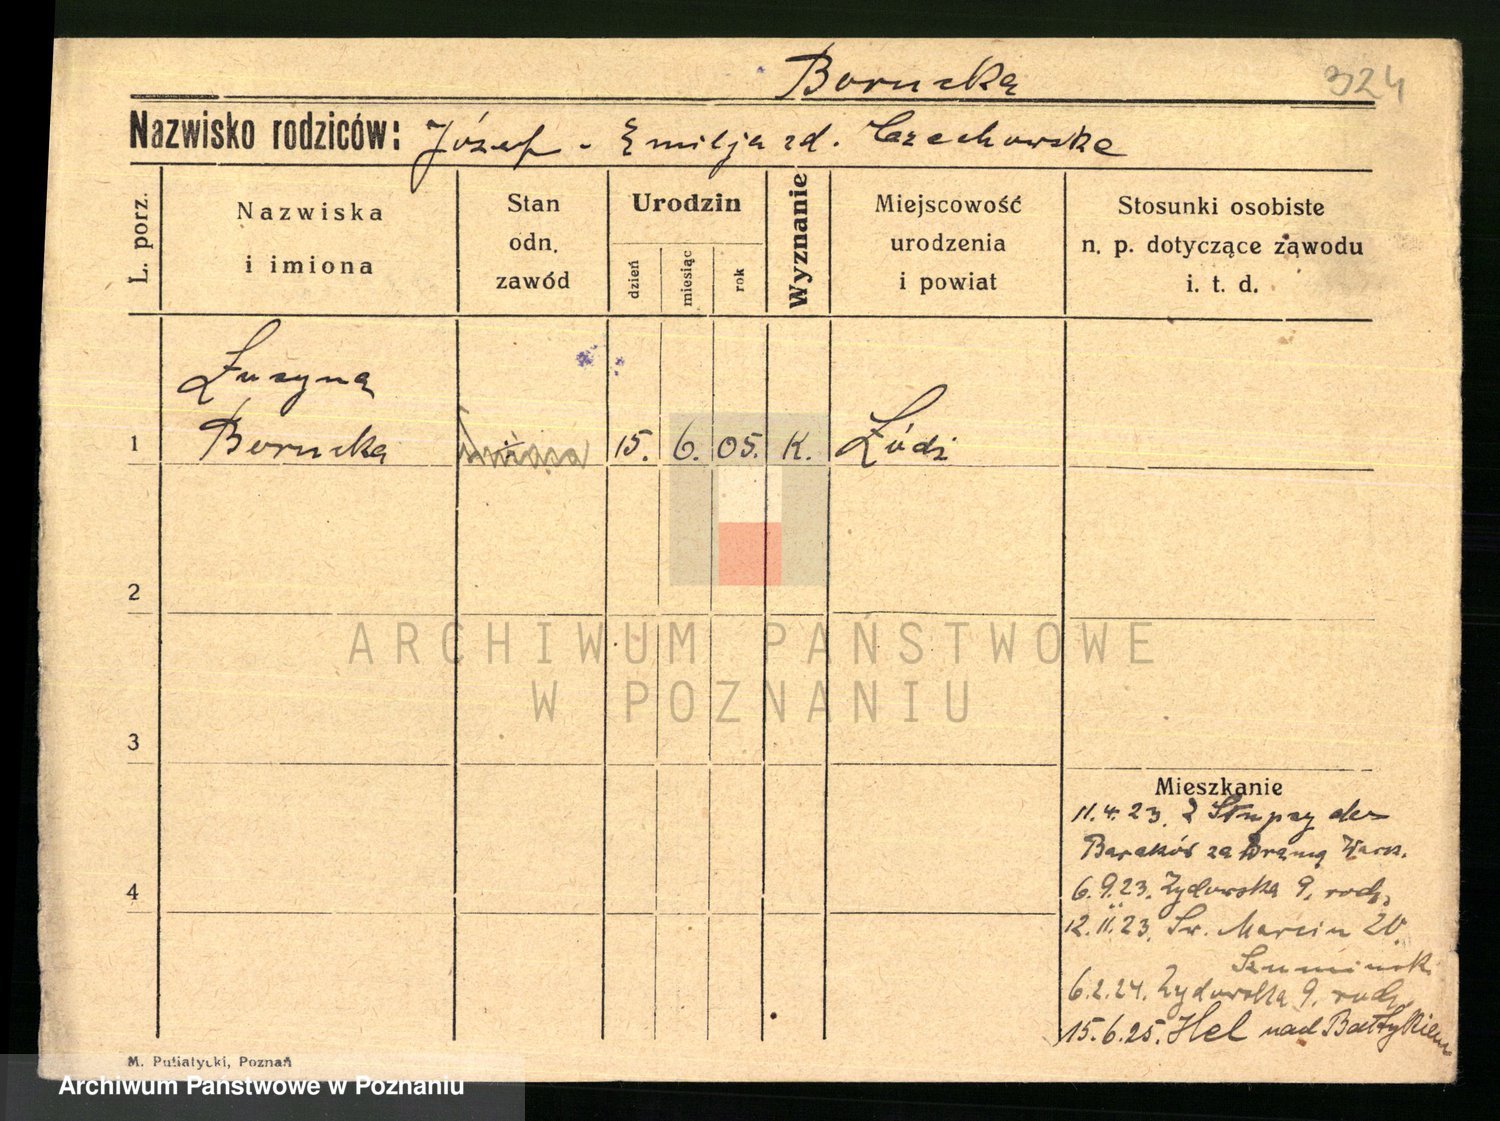 Borucka
324
Nazwisko rodziców: Józef - Emilja zd. Czechowska
L. porz.
Nazwiska
i imiona
Stan
odn.
zawód
Urodzin
dzień
miesiąc
rok
Wyznanie
Miejscowość
urodzenia
i powiat
Stosunki osobiste
n. p. dotyczące zawodu
i. t. d.
Łucyna
1 Borucka 15. 6. 05. K. Łódź
2
ARCHIWUM PAŃSTWOWE
W POZNANIU
3
Mieszkanie
11.4.23. Z Słupcy do
Baraków za Bramą Warsz.
4
6.9.23. Żydowska 9, rodz.
12.11.23. Św. Marcin 20
6.2.24. Żydowska 9, rodz.
15.6.25. Hel nad Bałtykiem
M. Putiatycki, Poznań
Archiwum Państwowe w Poznaniu